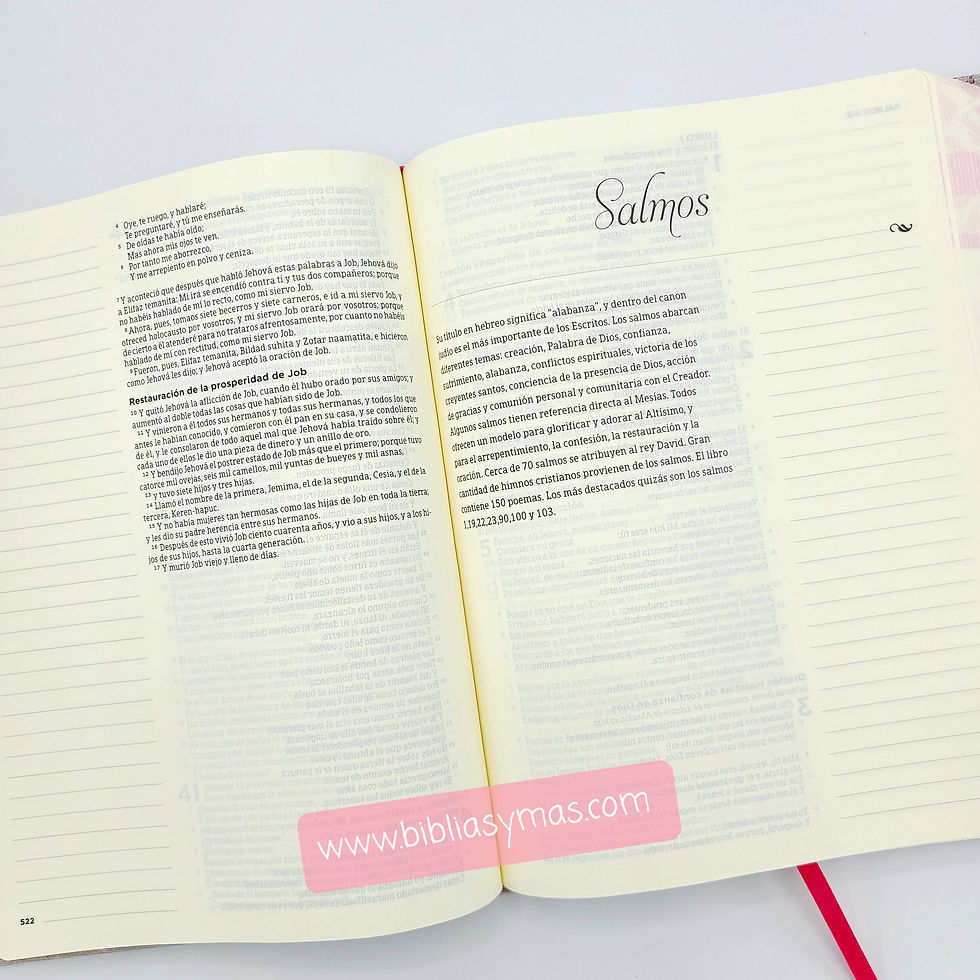 4 Oye, te ruego, y hablaré;
Te preguntaré, y tú me enseñarás.
5 De oídas te había oído;
Mas ahora mis ojos te ven.
6 Por tanto me aborrezco,
Y me arrepiento en polvo y ceniza.
7 Y aconteció que después que habló Jehová estas palabras a Job, Jehová dijo
a Elifaz temanita: Mi ira se encendió contra ti y tus dos compañeros; porque
no habéis hablado de mí lo recto, como mi siervo Job.
8 Ahora, pues, tomaos siete becerros y siete carneros, e id a mi siervo Job, y
ofreced holocausto por vosotros, y mi siervo Job orará por vosotros; porque
de cierto a él atenderé para no trataros afrentosamente, por cuanto no habéis
hablado de mí con rectitud, como mi siervo Job.
9 Fueron, pues, Elifaz temanita, Bildad suhita y Zofar naamatita, e hicieron
como Jehová les dijo; y Jehová aceptó la oración de Job.
Restauración de la prosperidad de Job
10 Y quitó Jehová la aflicción de Job, cuando él hubo orado por sus amigos; y
aumentó al doble todas las cosas que habían sido de Job.
11 Y vinieron a él todos sus hermanos y todas sus hermanas, y todos los que
antes le habían conocido, y comieron con él pan en su casa, y se condolieron
de él, y le consolaron de todo aquel mal que Jehová había traído sobre él; y
cada uno de ellos le dio una pieza de dinero y un anillo de oro.
12 Y bendijo Jehová el postrer estado de Job más que el primero; porque tuvo
catorce mil ovejas, seis mil camellos, mil yuntas de bueyes y mil asnas,
13 y tuvo siete hijos y tres hijas.
14 Llamó el nombre de la primera, Jemima, el de la segunda, Cesia, y el de la
tercera, Keren-hapuc.
15 Y no había mujeres tan hermosas como las hijas de Job en toda la tierra;
y les dio su padre herencia entre sus hermanos.
16 Después de esto vivió Job ciento cuarenta años, y vio a sus hijos, y a los hi-
jos de sus hijos, hasta la cuarta generación.
17 Y murió Job viejo y lleno de días.
522
Salmos
Su título en hebreo significa "alabanza", y dentro del canon
judío es el más importante de los Escritos. Los salmos abarcan
diferentes temas: creación, Palabra de Dios, confianza,
sufrimiento, alabanza, conflictos espirituales, victoria de los
creyentes santos, conciencia de la presencia de Dios, acción
de gracias y comunión personal y comunitaria con el Creador.
Algunos salmos tienen referencia directa al Mesías. Todos
ofrecen un modelo para glorificar y adorar al Altísimo, y
para el arrepentimiento, la confesión, la restauración y la
oración. Cerca de 70 salmos se atribuyen al rey David. Gran
cantidad de himnos cristianos provienen de los salmos. El libro
contiene 150 poemas. Los más destacados quizás son los salmos
1,19,22,23,90,100 y 103.
www.bibliasymas.com